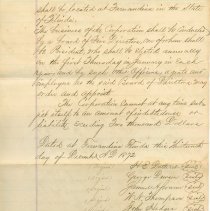 shall be located at Fernandina in the State
of Florida.
The business of the Corporation shall be conducted
by a board of Five Directors, one of whom shall
be President, who shall be elected annually
on the first Thursday in January in each
year and by such other Officers, agents and
employees as the said Board of Directors may
order and appoint.
The Corporation cannot at any time sub-
ject itself to an amount of indebtedness or
liability exceeding Two thousand Dollars
Dated at Fernandina this thirteenth
day of December AD 1872
George Dewson
Samuel
W. N. Thompson
John